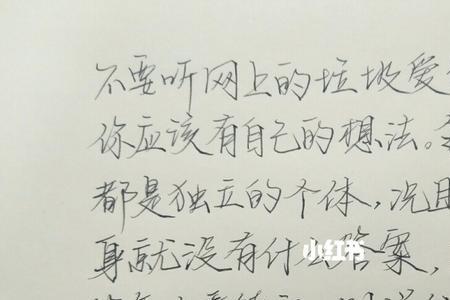 不要听网上的垃圾爱
你应该有自己的想法。
都是独立的个体，况且
身就没有什么答案，
小红书